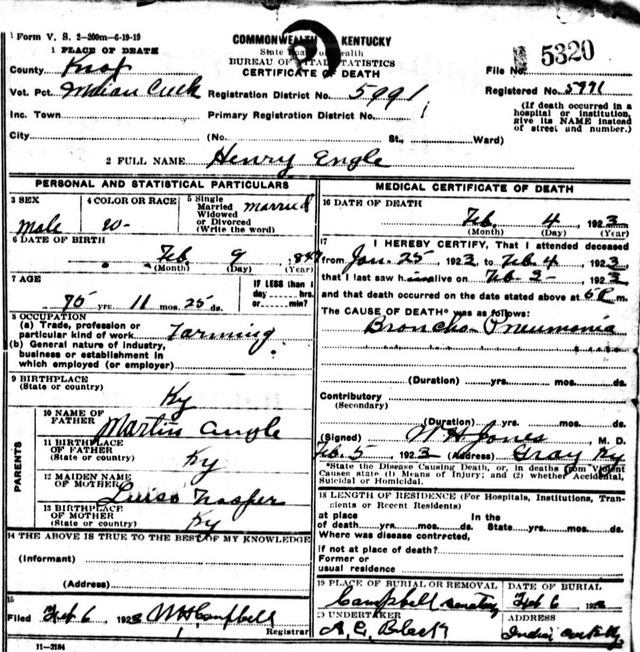 Form V. S. 2-200m-6-19-19
COMMONWEALTH KENTUCKY
State Board of Health
BUREAU OF VITAL STATISTICS
CERTIFICATE OF DEATH
1 PLACE OF DEATH
County Knox
File No. 5320
Vot. Pct. Indian Creek Registration District No. 5991 Registered No. 5991
Inc. Town Primary Registration District No. 1
(If death occurred in a hospital or institution, give its NAME instead of street and number.)
City (No. St., Ward)
2 FULL NAME Henry Engle
PERSONAL AND STATISTICAL PARTICULARS
3 SEX Male
4 COLOR OR RACE W-
5 Single Married Widowed or Divorced (Write the word) married
6 DATE OF BIRTH
Feb 9 1847
(Month) (Day) (Year)
7 AGE
75 yrs. 11 mos. 25 ds.
IF LESS than 1 day hrs. or min.?
8 OCCUPATION
(a) Trade, profession or particular kind of work Farming
(b) General nature of industry, business or establishment in which employed (or employer)
9 BIRTHPLACE
(State or country) Ky
PARENTS
10 NAME OF FATHER Martin Engle
11 BIRTHPLACE OF FATHER
(State or country) Ky
12 MAIDEN NAME OF MOTHER
13 BIRTHPLACE OF MOTHER
(State or country) Ky
14 THE ABOVE IS TRUE TO THE BEST OF MY KNOWLEDGE
(Informant)
(Address)
15
Filed Feb 6 1923 WH Campbell
Registrar
11-3184
MEDICAL CERTIFICATE OF DEATH
16 DATE OF DEATH
Feb. 4 1923
(Month) (Day) (Year)
17 I HEREBY CERTIFY, That I attended deceased
from Jan. 25, 1923 to Feb 4 1923
that I last saw him alive on Feb 3- 1923
and that death occurred on the date stated above at m.
The CAUSE OF DEATH* was as follows:
Broncho-Pneumonia
(Duration) yrs. mos. ds.
Contributory
(Secondary)
(Duration) yrs. mos. ds.
(Signed) W H Jones, M. D.
Feb. 5 1923 (Address) Gray Ky
*State the Disease Causing Death, or, in deaths from Violent Causes state (1) Means of Injury; and (2) whether Accidental, Suicidal or Homicidal.
18 LENGTH OF RESIDENCE (For Hospitals, Institutions, Transients or Recent Residents)
at place of death yrs. mos. ds. In the State yrs. mos. ds.
Where was disease contrected,
if not at place of death?
Former or
usual residence
19 PLACE OF BURIAL OR REMOVAL DATE OF BURIAL
Campbell Feb 6
20 UNDERTAKER ADDRESS
Black